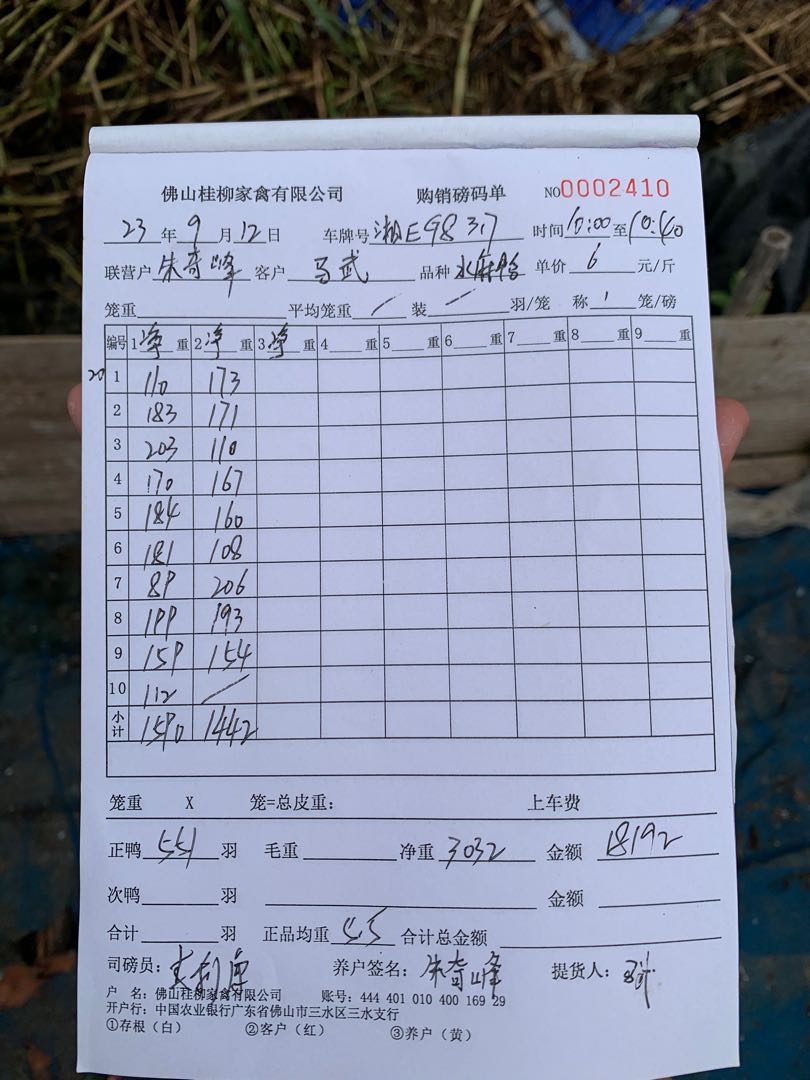 佛山桂柳家禽有限公司 购销磅码单 NO0002410
23年9月12日 车牌号湘E98317 时间10:00至10:40
联营户 朱奇峰 客户 马武 品种 水麻鸭 单价 6 元/斤
笼重 平均笼重 / 装 一 羽/笼 称 1 笼/磅
编号 1净重 2净重 3净重 4重 5重 6重 7重 8重 9重
20 1 110 173
2 183 171
3 203 110
4 170 167
5 184 160
6 181 108
7 89 206
8 199 193
9 159 154
10 112 /
小计 1590 1442
笼重 X 笼=总皮重： 上车费
正鸭 551 羽 毛重 净重 3032 金额 18192
次鸭 羽 金额
合计 羽 正品均重 合计总金额
司磅员： 养户签名：朱奇峰 提货人：
户 名：佛山桂柳家禽有限公司 账号：444 401 010 400 169 29
开户行：中国农业银行广东省佛山市三水区三水支行
①存根（白） ②客户（红） ③养户（黄）